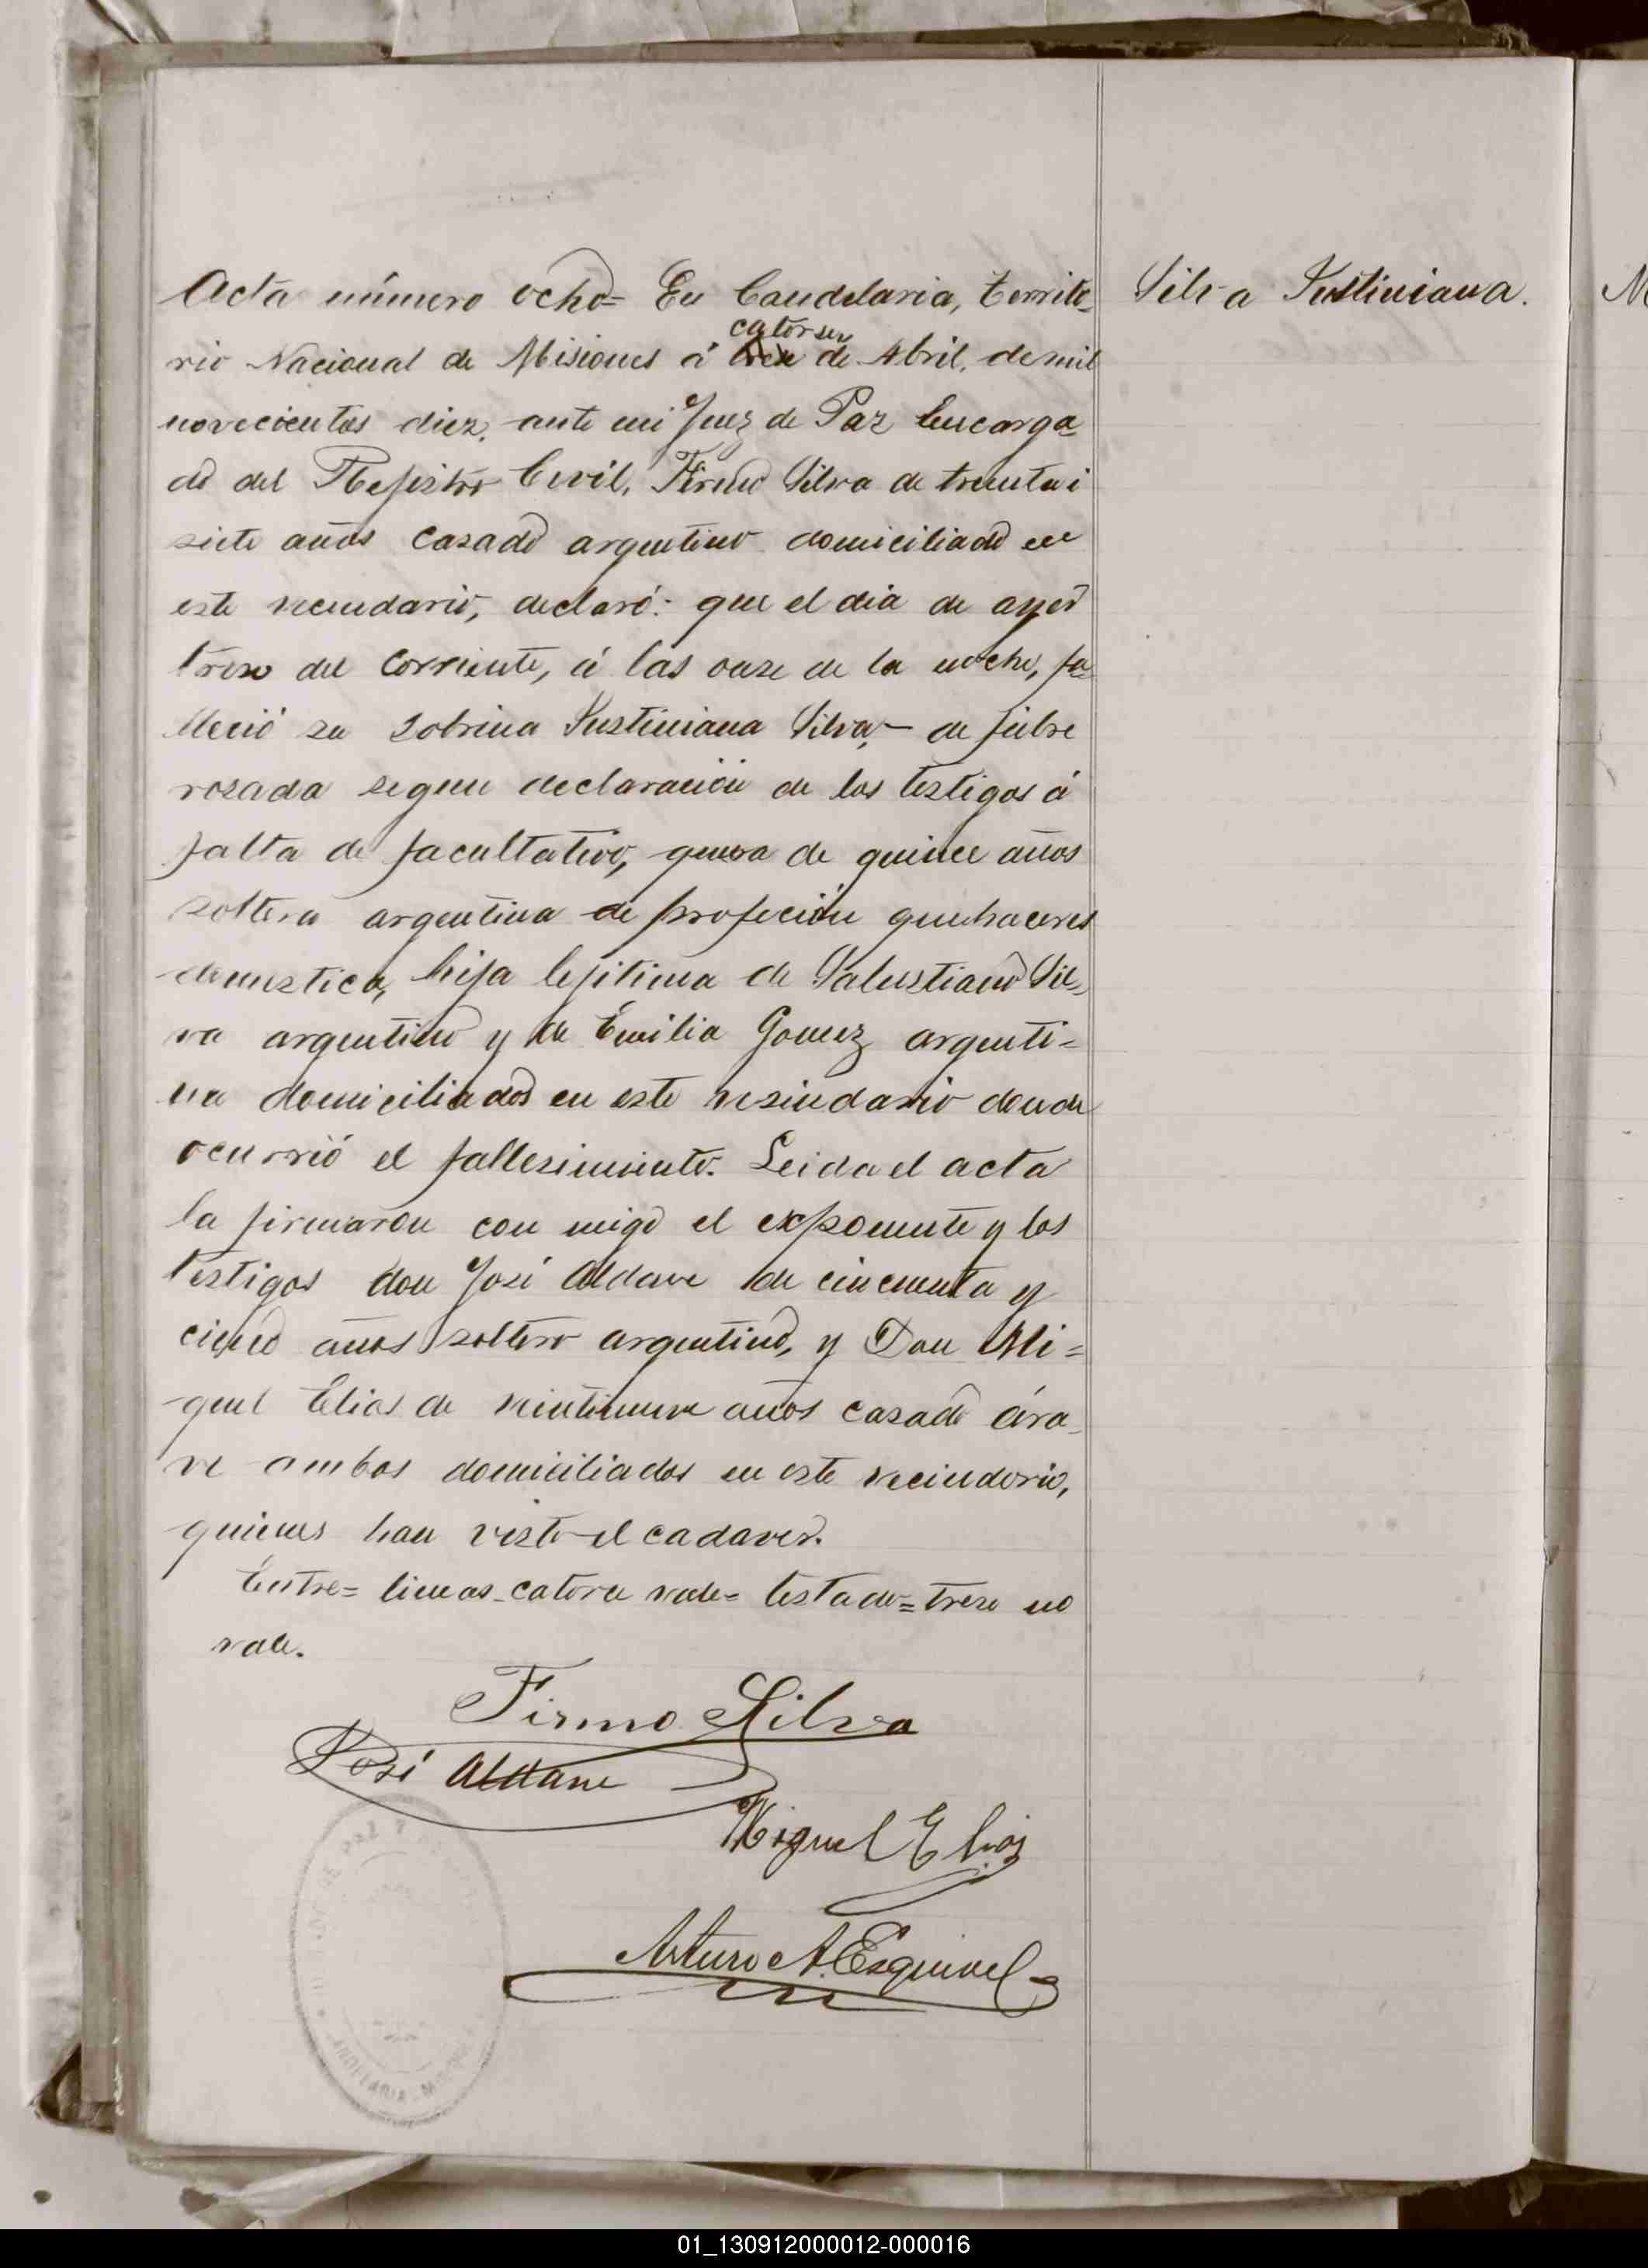 Acta número ocho= En Candelaria, Territo=
Silva Justiniana.
catorse
rio Nacional de Misiones á trese de Abril, de mil
novecientos diez, ante mi Juez de Paz Encarga=
do del Rejistro Civil, Firmo Silva de treinta i
siete años casado argentino domiciliado en
este vecindario, declaró: que el dia de ayer
trese del corriente, á las onse de la noche, fa=
lleció su sobrina Justiniana Silva,- de fiibre
rosada segun declaración de los testigos á
falta de facultativo, quera de quince años
soltera argentina de profeción quehaceres
domestica, hija lejitima de Salustiano Sil=
va argentino y de Emilia Gomez argenti=
na domiciliados en este vesindario donde
ocurrió el fallesimiento. Leida el acta
la firmaron con migo el exponente y los
testigos don José Aldave de cincuenta y
cinco años soltero argentino, y Don Mi=
guel Elias de veintinueve años casado ára_
ve ambos domiciliados en este vecindario,
quienes han visto el cadaver.
Entre= lineas_catorce vale= testado= trese no
vale.
Firmo Silva
José Aldave
Miguel Elias
Arturo A. Esquivel
01_130912000012-000016